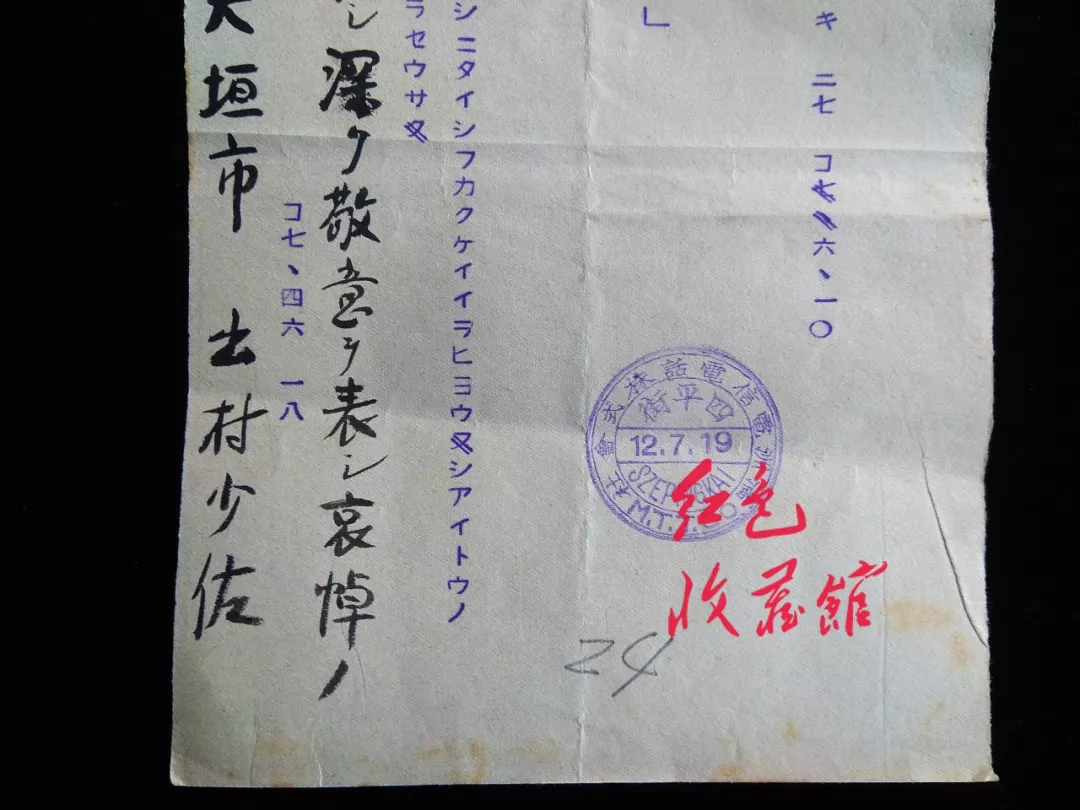 キ 二七 コ 六、一〇
」
シニタイシフカクケイイラヒヨウ シアイトウノ
ラセウサ
シ深ク敬意ヲ表シ哀悼ノ
コ七、四六 一八
大垣市 出村少佐
満洲電信電話株式會社
四平街
12.7.19
SZEPINGKAI
M.T.T.CO.
24
红色
收藏館